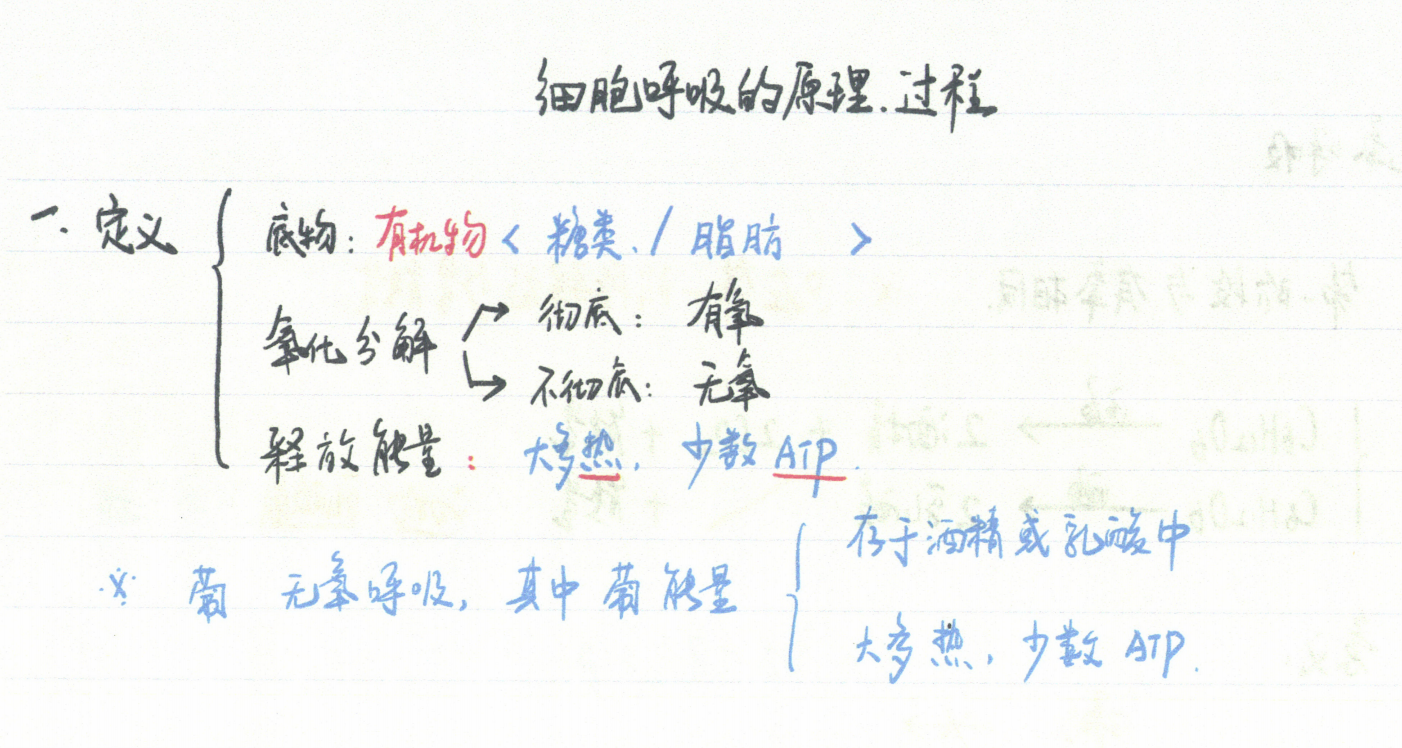 细胞呼吸的原理.过程
一. 定义
底物: 有机物 < 糖类. / 脂肪 >
氧化分解
彻底: 有氧
不彻底: 无氧
释放能量: 大多热, 少数ATP.
※ 葡 无氧呼吸, 其中葡能量
存于酒精或乳酸中
大多热, 少数ATP.